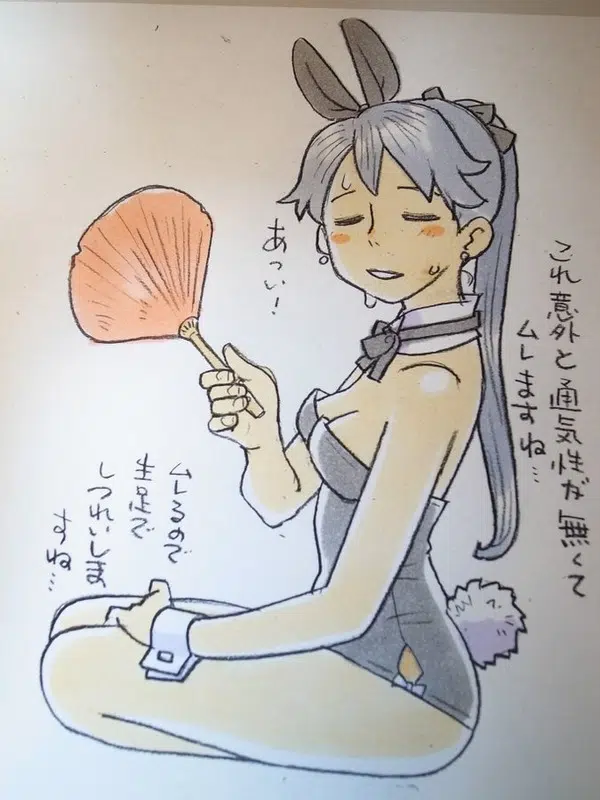 これ意外と通気性が無くて
ムレますね…
あつい！
ムレるので
生足で
しつれいしま
すね…